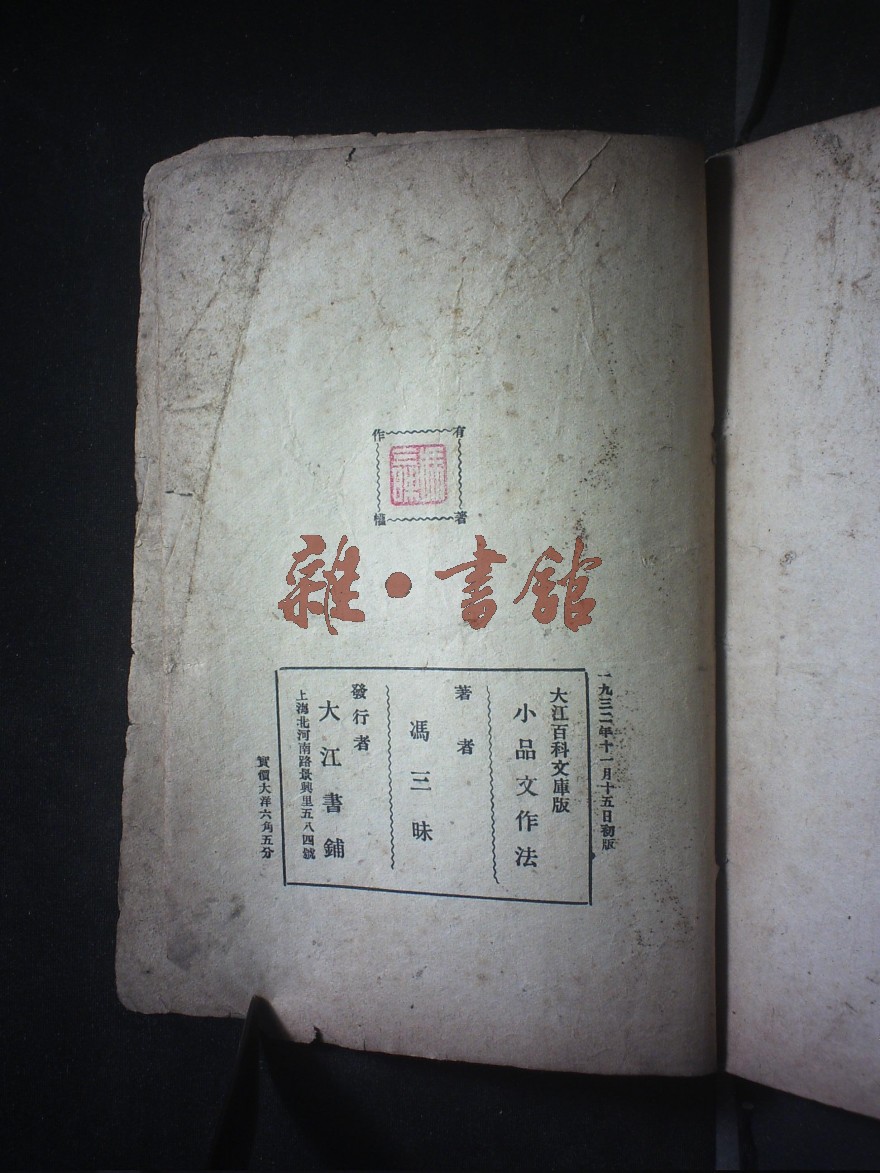 有著作權
馮三昧
雜·書館
一九三二年十一月十五日初版
大江百科文庫版
小品文作法
著者
馮三昧
發行者
大江書鋪
上海北河南路景興里五八四號
實價大洋六角五分